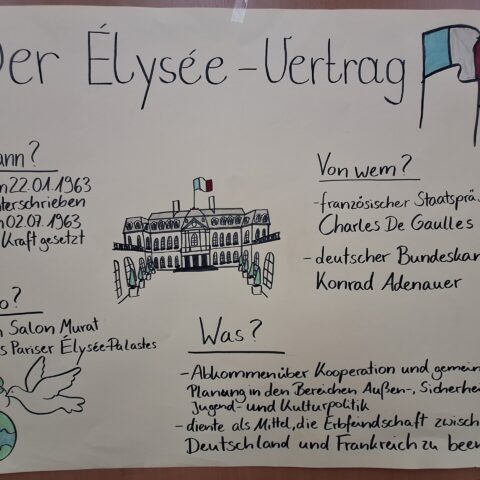 Der Élysée-Vertrag
ann?
n 22.01.1963
terschrieben
n 02.07.1963
Kraft gesetzt
Von wem?
-französischer Staatsprä
Charles De Gaulles
-deutscher Bundeskan
Konrad Adenauer
o?
n Salon Murat
s Pariser Élysée-Palastes
Was?
-Abkommen über Kooperation und gemein
Planung in den Bereichen Außen-, Sicherhei
Jugend- und Kulturpolitik
-diente als Mittel, die Erbfeindschaft zwisch
Deutschland und Frankreich zu been